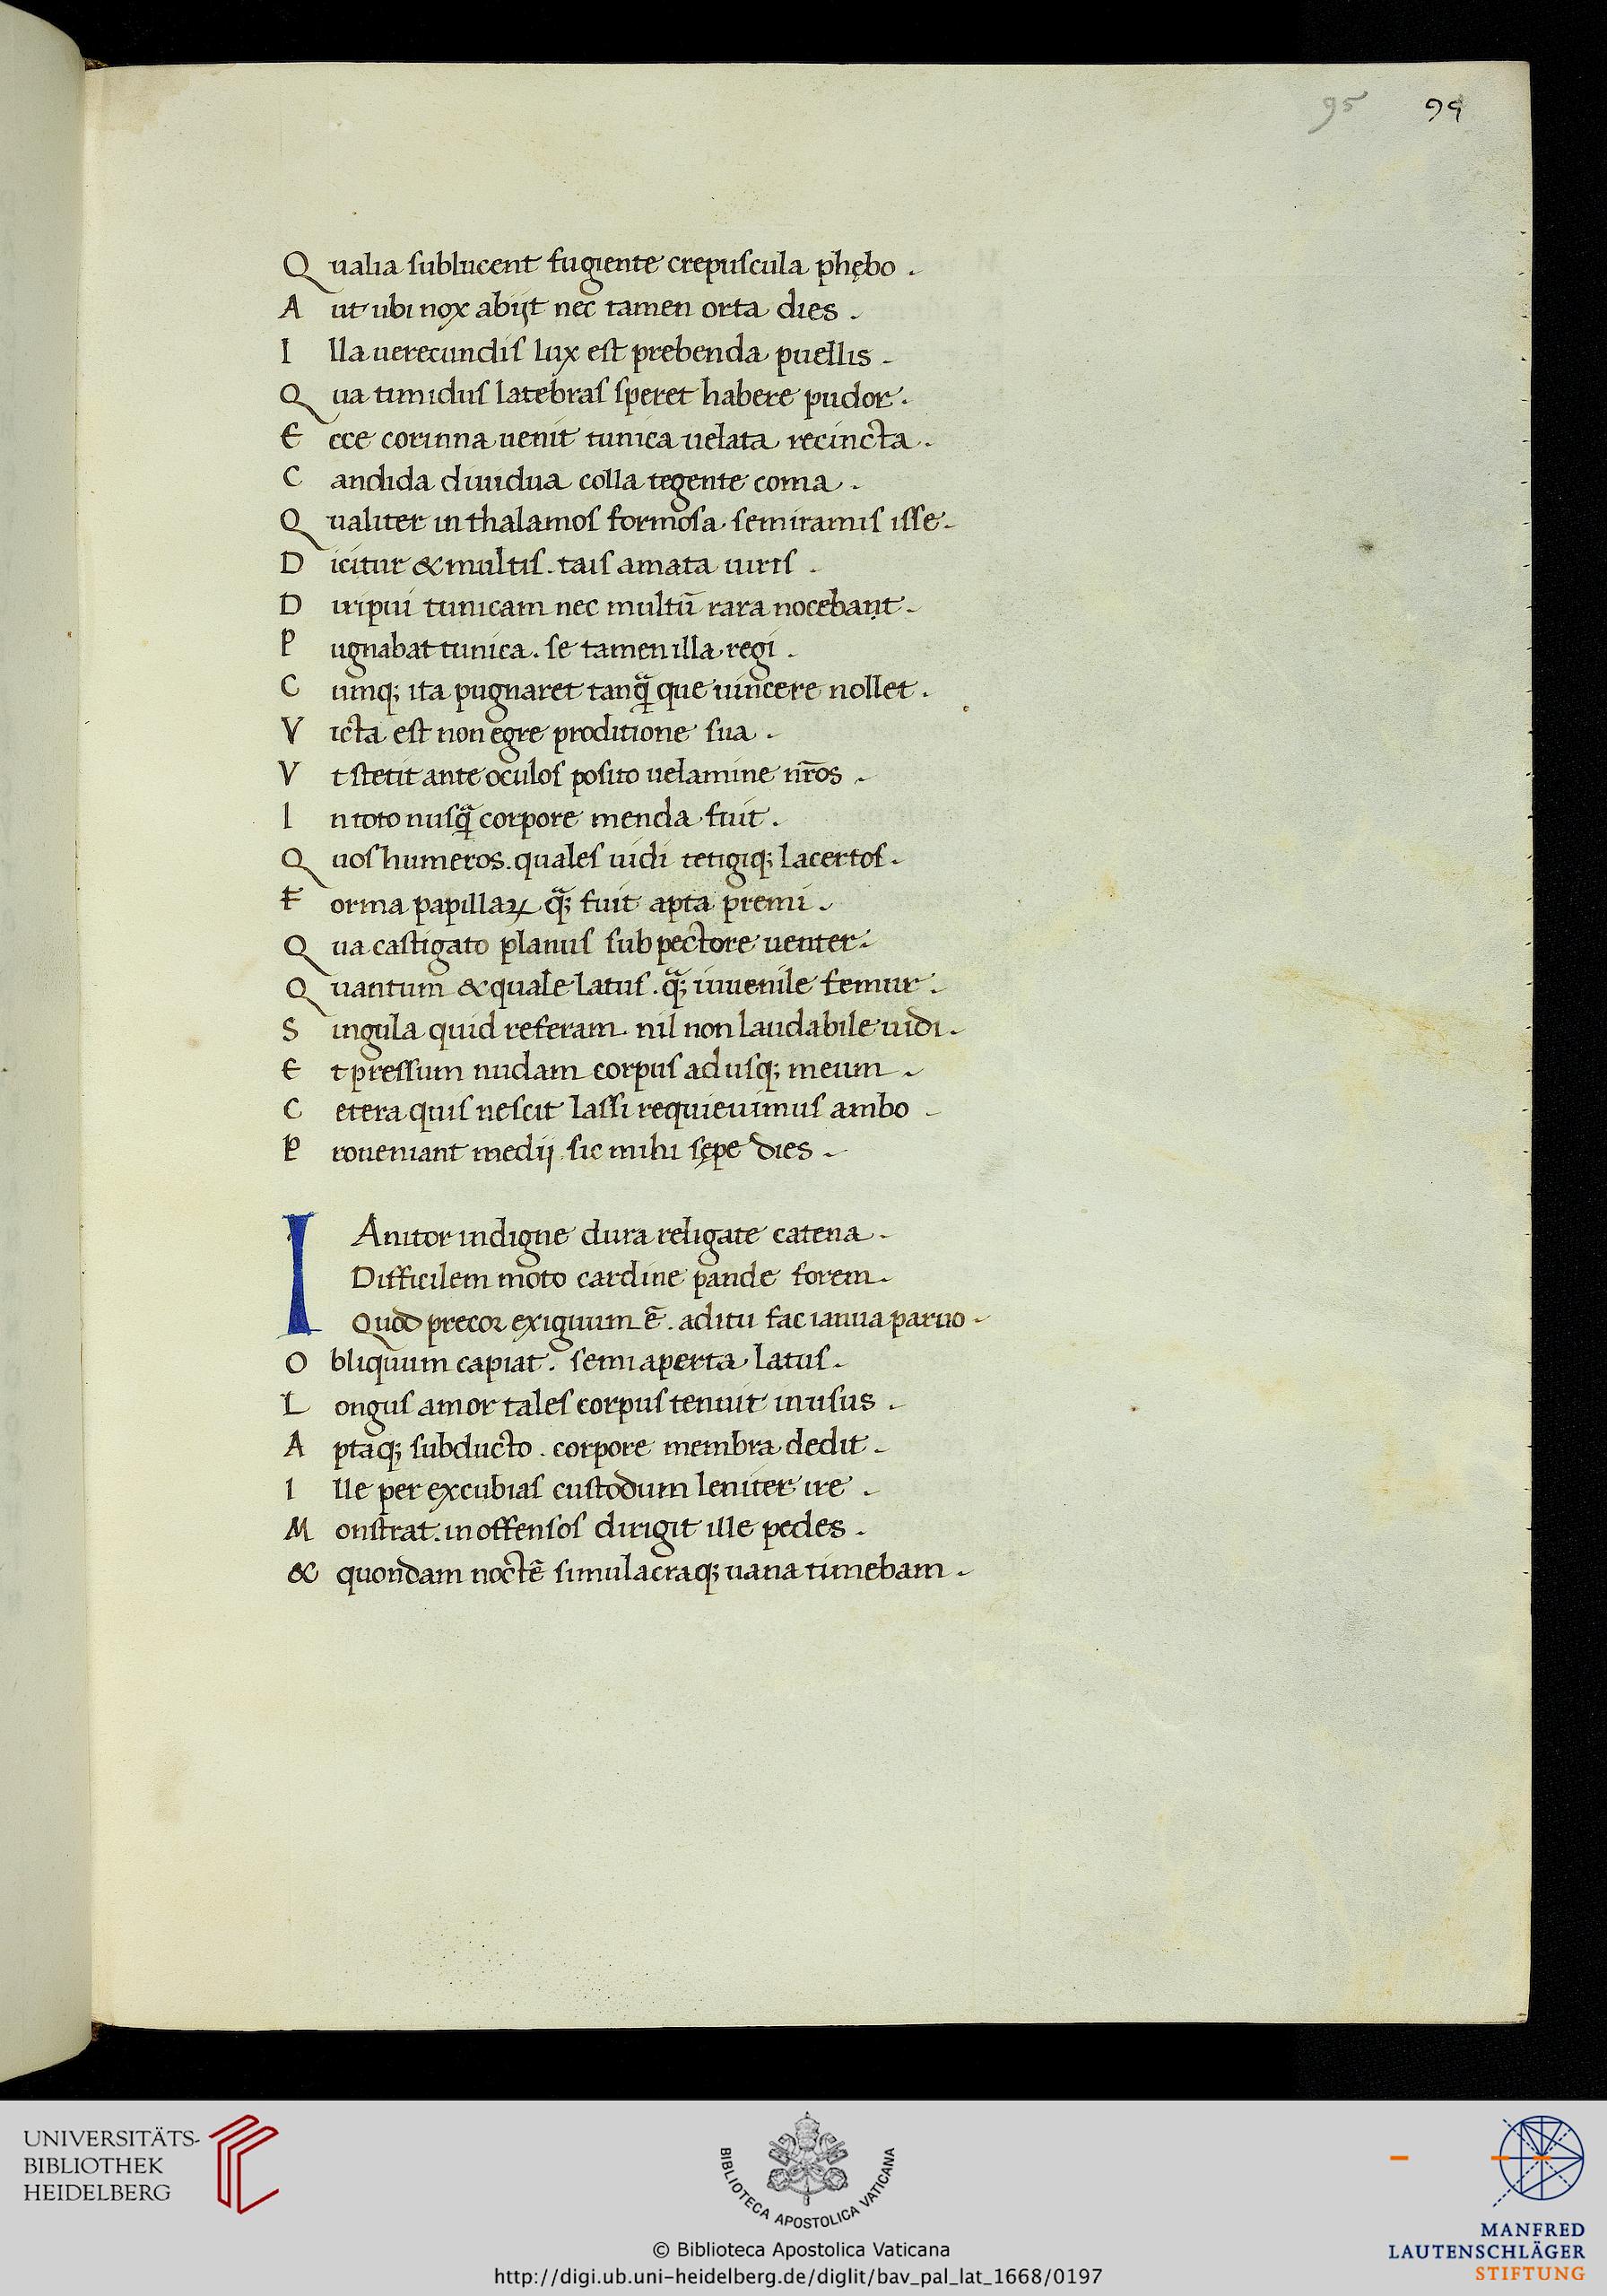 95 99
Qualia sublucent fugiente crepuscula phębo .
Aut ubi nox abijt nec tamen orta dies .
Illa uerecundis lux est prebenda puellis .
Qua timidus latebras speret habere pudor .
Ecce corinna uenit tunica uelata recincta .
Candida diuidua colla tegente coma .
Qualiter in thalamos formosa semiramis isse .
Dicitur & multis . tais amata uiris .
Diripui tunicam nec multū rara nocebant .
Pugnabat tunica . se tamen illa regi .
Cumq; ita pugnaret tanq̃ que uincere nollet .
Victa est non egre proditione sua .
Vt stetit ante oculos posito uelamine nr̄os .
In toto nusq̃ corpore menda fuit .
Quos humeros . quales uidi tetigiq; lacertos .
Forma papillaꝝ q̃; fuit apta premi .
Qua castigato planus sub pectore uenter .
Quantum & quale latus . q̃; iuuenile femur .
Singula quid referam nil non laudabile uidi .
Et pressum nudam corpus adusq; meum .
Cetera quis nescit lassi requieuimus ambo .
Proueniant medij sic mihi sępe dies .
IAnitor indigne dura religate catena .
Difficilem moto cardine pande forem .
Quod precor exiguum ē . aditu fac ianua paruo .
Obliquum capiat . semiaperta latus .
Longus amor tales corpus tenuit in usus .
Aptaq; subducto . corpore membra dedit .
Ille per excubias custodum leniter ire .
Monstrat . inoffensos dirigit ille pedes .
& quondam noctē simulacraq; uana timebam .
UNIVERSITÄTS-
BIBLIOTHEK
HEIDELBERG
BIBLIOTECA APOSTOLICA VATICANA
© Biblioteca Apostolica Vaticana
http://digi.ub.uni-heidelberg.de/diglit/bav_pal_lat_1668/0197
MANFRED
LAUTENSCHLÄGER
STIFTUNG